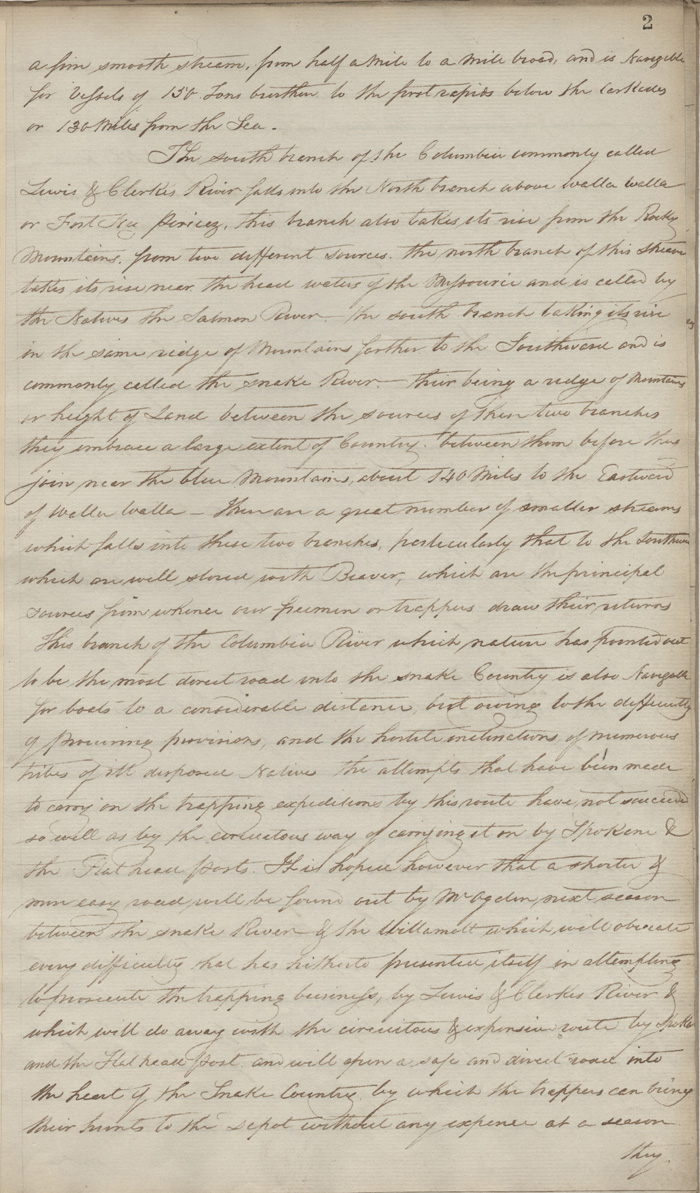 2
a fine smooth stream, from half a Mile to a mile broad, and is Navigable
for Vessels of 150 Tons burthen to the first rapids below the Caskades
or 130 Miles from the Sea.
The south branch of the Columbia commonly called
Lewis & Clerkes River falls into the North branch above walla walla
or Fort Nez Percez, this branch also takes its rise from the Rocky
Mountains, from two different sources. the north branch of this stream
takes its rise near the head waters of the Missourie and is called by
the Natives the Salmon River — the south branch taking its rise
in the same ridge of Mountains farther to the Southward and is
commonly called the snake River — their being a ridge of Mountains
or height of Land between the sources of these two branches
they embrace a large extent of Country between them before they
join near the blue Mountains, about 140 Miles to the Eastward
of walla walla — there are a great number of smaller streams
which falls into these two branches, particularly that to the Southern
which are well stored with Beaver, which are the principal
sources from whence our freemen or trappers draw their returns
This branch of the Columbia River which nature has pointed out
to be the most direct road into the snake Country is also Navigable
for boats to a considerable distance, but owing to the difficulty
of procuring provisions, and the hostile inclinations of numerous
tribes of ill disposed Natives the attempts that have been made
to carry on the trapping expeditions by this route have not succeed
so well as by the circuitous way of carrying it on by Spokene &
the Flat head posts. It is hoped however that a shorter &
more easy road will be found out by Mr Ogden next season
between the snake River & the Willamatt which will obviate
every difficulty that has hitherto presented itself in attempting
to prosecute the trapping business, by Lewis & Clerkes River &
which will do away with the circuitous & expensive route by Spokn
and the Flat head post and will open a safe and direct road into
the heart of the Snake Country by which the trappers can bring
their hunts to the depot without any expence at a season
they